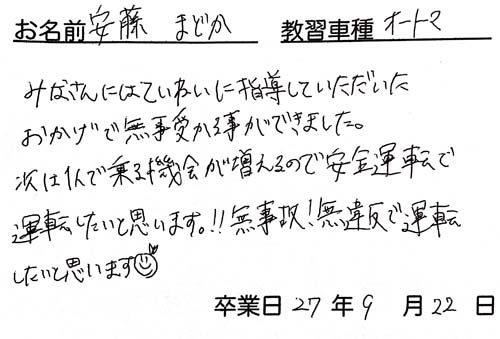 お名前 安藤 まどか 教習車種 オートマ
みなさんにはていねいに指導していただいた
おかげで無事受かる事ができました。
次は1人で乗る機会が増えるので安全運転で
運転したいと思います。!!無事故!無違反で運転
したいと思います
卒業日 27年9月22日